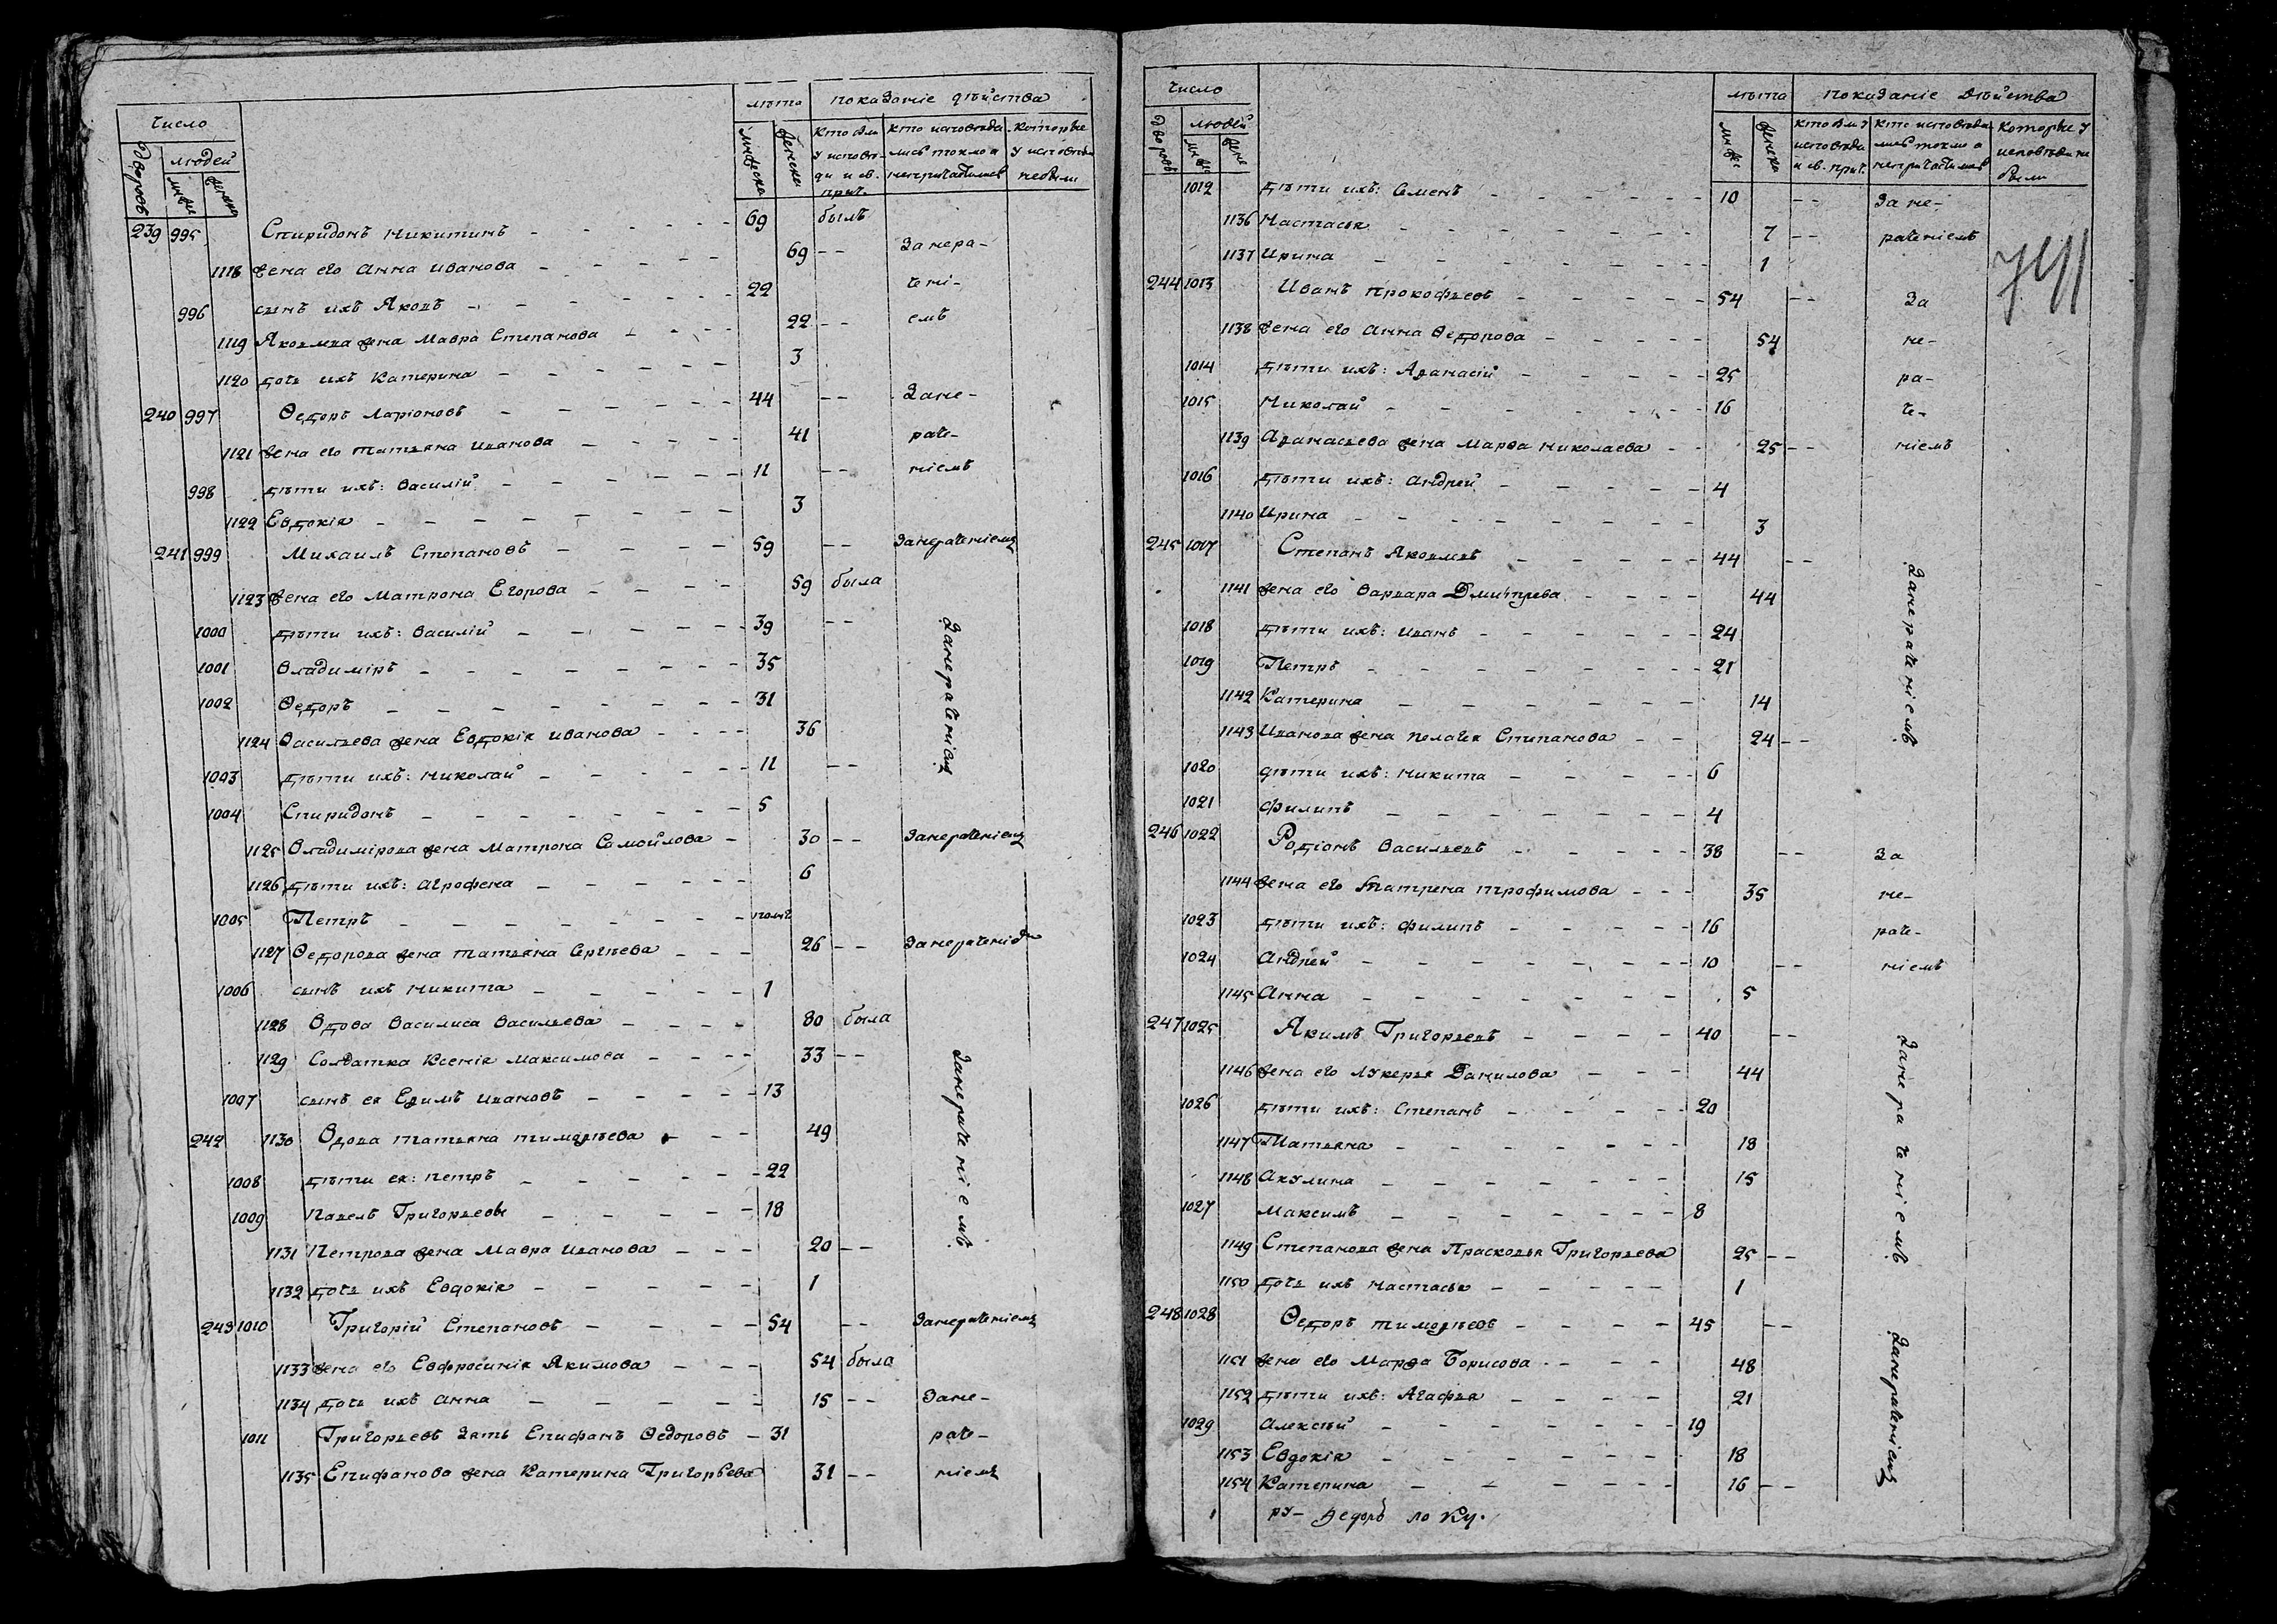 число
лѣта показаніе дѣйства
дворовъ людей
муж. женска
мужеска женска
кто былъ у исповѣди и св. прич.
кто исповѣдались токмо а непричастились
которые у исповѣди небыли
239 995 Спиридонъ Никитинъ 69 былъ
1118 жена его Анна Иванова 69 -- Занера-
996 сынъ ихъ Яковъ 22 чені-
1119 Яковлева жена Мавра Степанова 22 -- емъ
1120 дочь ихъ Катерина 3
240 997 Ѳедоръ Ларіоновъ 44 -- Зане-
1121 жена его Татьяна Иванова 41 раче-
998 дѣти ихъ: Василій 11 -- ніемъ
1122 Евдокія 3
241 999 Михаилъ Степановъ 59 -- Занераченіемъ
1123 жена его Матрона Егорова 59 была
1000 дѣти ихъ: Василій 39 --
1001 Владиміръ 35
1002 Ѳедоръ 31
1124 Васильева жена Евдокія Иванова 36
Занераченіемъ
1003 дѣти ихъ: Николай 11 --
1004 Спиридонъ 5
1125 Владимірова жена Матрона Самойлова 30 -- Занераченіемъ
1126 дѣти ихъ: Агрофена 6
1005 Петръ полъ
1127 Ѳедорова жена Татьяна Сергѣева 26 -- Занераченіемъ
1006 сынъ ихъ Никита 1
1128 Вдова Василиса Васильева 80 была
1129 Солдатка Ксенія Максимова 33 --
1007 сынъ ея Ефимъ Ивановъ 13
242 1130 Вдова Татьяна Тимоѳѣева 49
Занераченіемъ
1008 дѣти ея: Петръ 22
1009 Павелъ Григорьевы 18
1131 Петрова жена Мавра Иванова 20 --
1132 дочь ихъ Евдокія 1
243 1010 Григорій Степановъ 54 -- Занераченіемъ
1133 жена его Евфросинія Якимова 54 была
1134 дочь ихъ Анна 15 -- Зане-
1011 Григорьевъ зять Епифанъ Ѳедоровъ 31 раче-
1135 Епифанова жена Катерина Григорьева 31 -- ніемъ
число
лѣта показаніе дѣйства
дворовъ людей
муж. жен.
мужс. женска
кто былъ у исповѣди и св. прич.
кто исповѣдались токмо а непричастились
которые у исповѣди не были
1012 дѣти ихъ: Семенъ 10 -- За не-
1136 Настасья 7 -- раченіемъ
1137 Ирина 1
244 1013 Иванъ Прокофьевъ 54 -- За
1138 жена его Анна Ѳедорова 54 не-
1014 дѣти ихъ: Аѳанасій 25 ра-
1015 Николай 16 че-
1139 Аѳанасьева жена Марѳа Николаева 25 -- ніемъ
1016 дѣти ихъ: Андрей 4
1140 Ирина 3
245 1007 Степанъ Яковлевъ 44 --
1141 жена его Варвара Дмитрева 44
Занераченіемъ
1018 дѣти ихъ: Иванъ 24
1019 Петръ 21
1142 Катерина 14
1143 Иванова жена Пелагея Степанова 24 --
1020 дѣти ихъ: Никита 6
1021 Филипъ 4
246 1022 Родіонъ Васильевъ 38 -- За
1144 жена его Матрена Трофимова 35 не-
1023 дѣти ихъ: Филипъ 16 раче-
1024 Андрей 10 -- ніемъ
1145 Анна 5
247 1025 Якимъ Григорьевъ 40 --
1146 жена его Лукерья Данилова 44
Занераченіемъ
1026 дѣти ихъ: Степанъ 20
1147 Татьяна 18
1148 Акулина 15
1027 Максимъ 8
1149 Степанова жена Прасковья Григорьева 25 --
1150 дочь ихъ Настасья 1
248 1028 Ѳедоръ Тимоѳѣевъ 45 --
1151 жена его Марѳа Борисова 48
Занераченіемъ
1152 дѣти ихъ: Агафья 21
1029 Алексѣй 19
1153 Евдокія 18
1154 Катерина 16 --